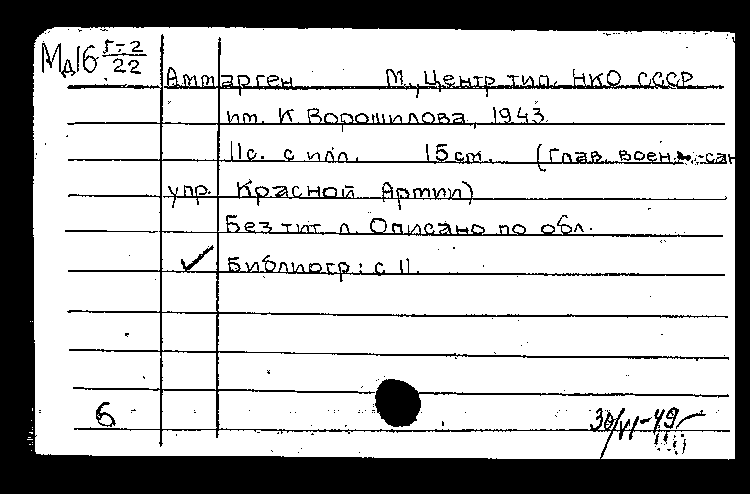 Мд16 Г-2/22
Аммарген М., Центр. тип. НКО СССР
им. К Ворошилова, 1943.
11с. с илл. 15 см. (Глав. воен.-сан
упр. Красной Армии)
Без тит. л. Описано по обл.
Библиогр: с 11.
6
30/VI-49